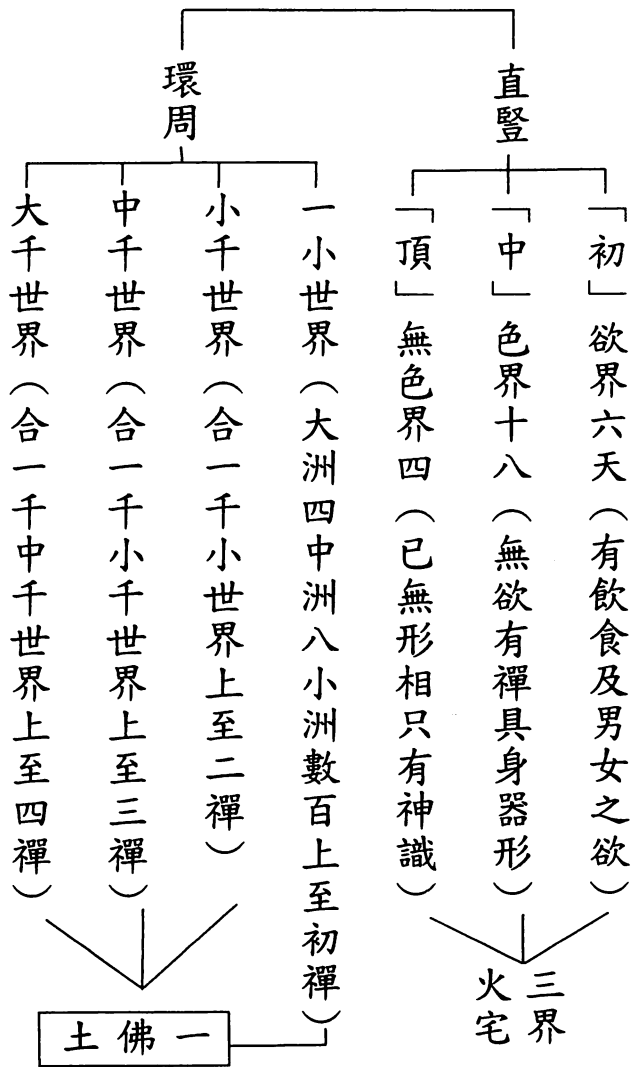 直豎
「初」欲界六天（有飲食及男女之欲）
「中」色界十八（無欲有禪具身器形）
「頂」無色界四（已無形相只有神識）
三界
火宅
環周
一小世界（大洲四中洲八小洲數百上至初禪）
小千世界（合一千小世界上至二禪）
中千世界（合一千小千世界上至三禪）
大千世界（合一千中千世界上至四禪）
一佛土